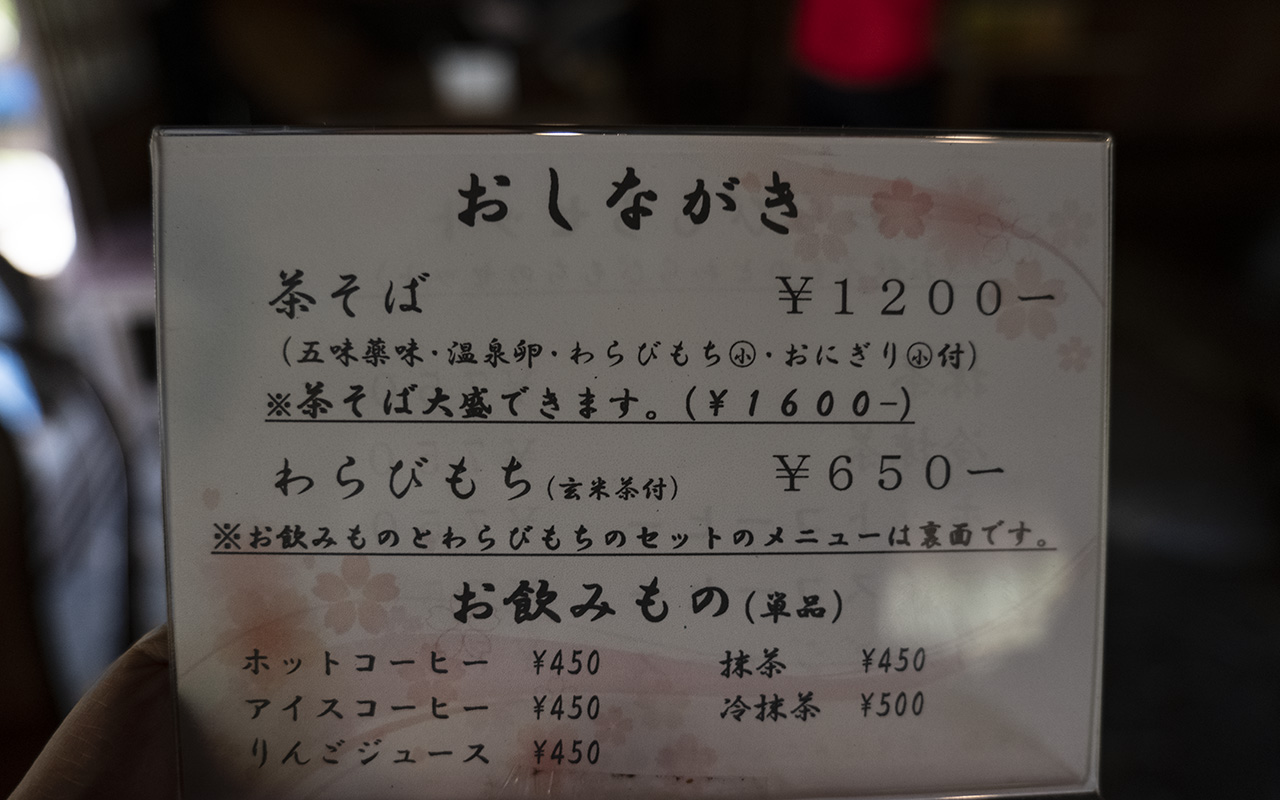 おしながき
茶そば ¥1200ー
(五味薬味・温泉卵・わらびもち㊙・おにぎり㊙付)
※茶そば大盛できます。(¥1600-)
わらびもち(玄米茶付) ¥650ー
※お飲みものとわらびもちのセットのメニューは裏面です。
お飲みもの(単品)
ホットコーヒー ¥450 抹茶 ¥450
アイスコーヒー ¥450 冷抹茶 ¥500
りんごジュース ¥450